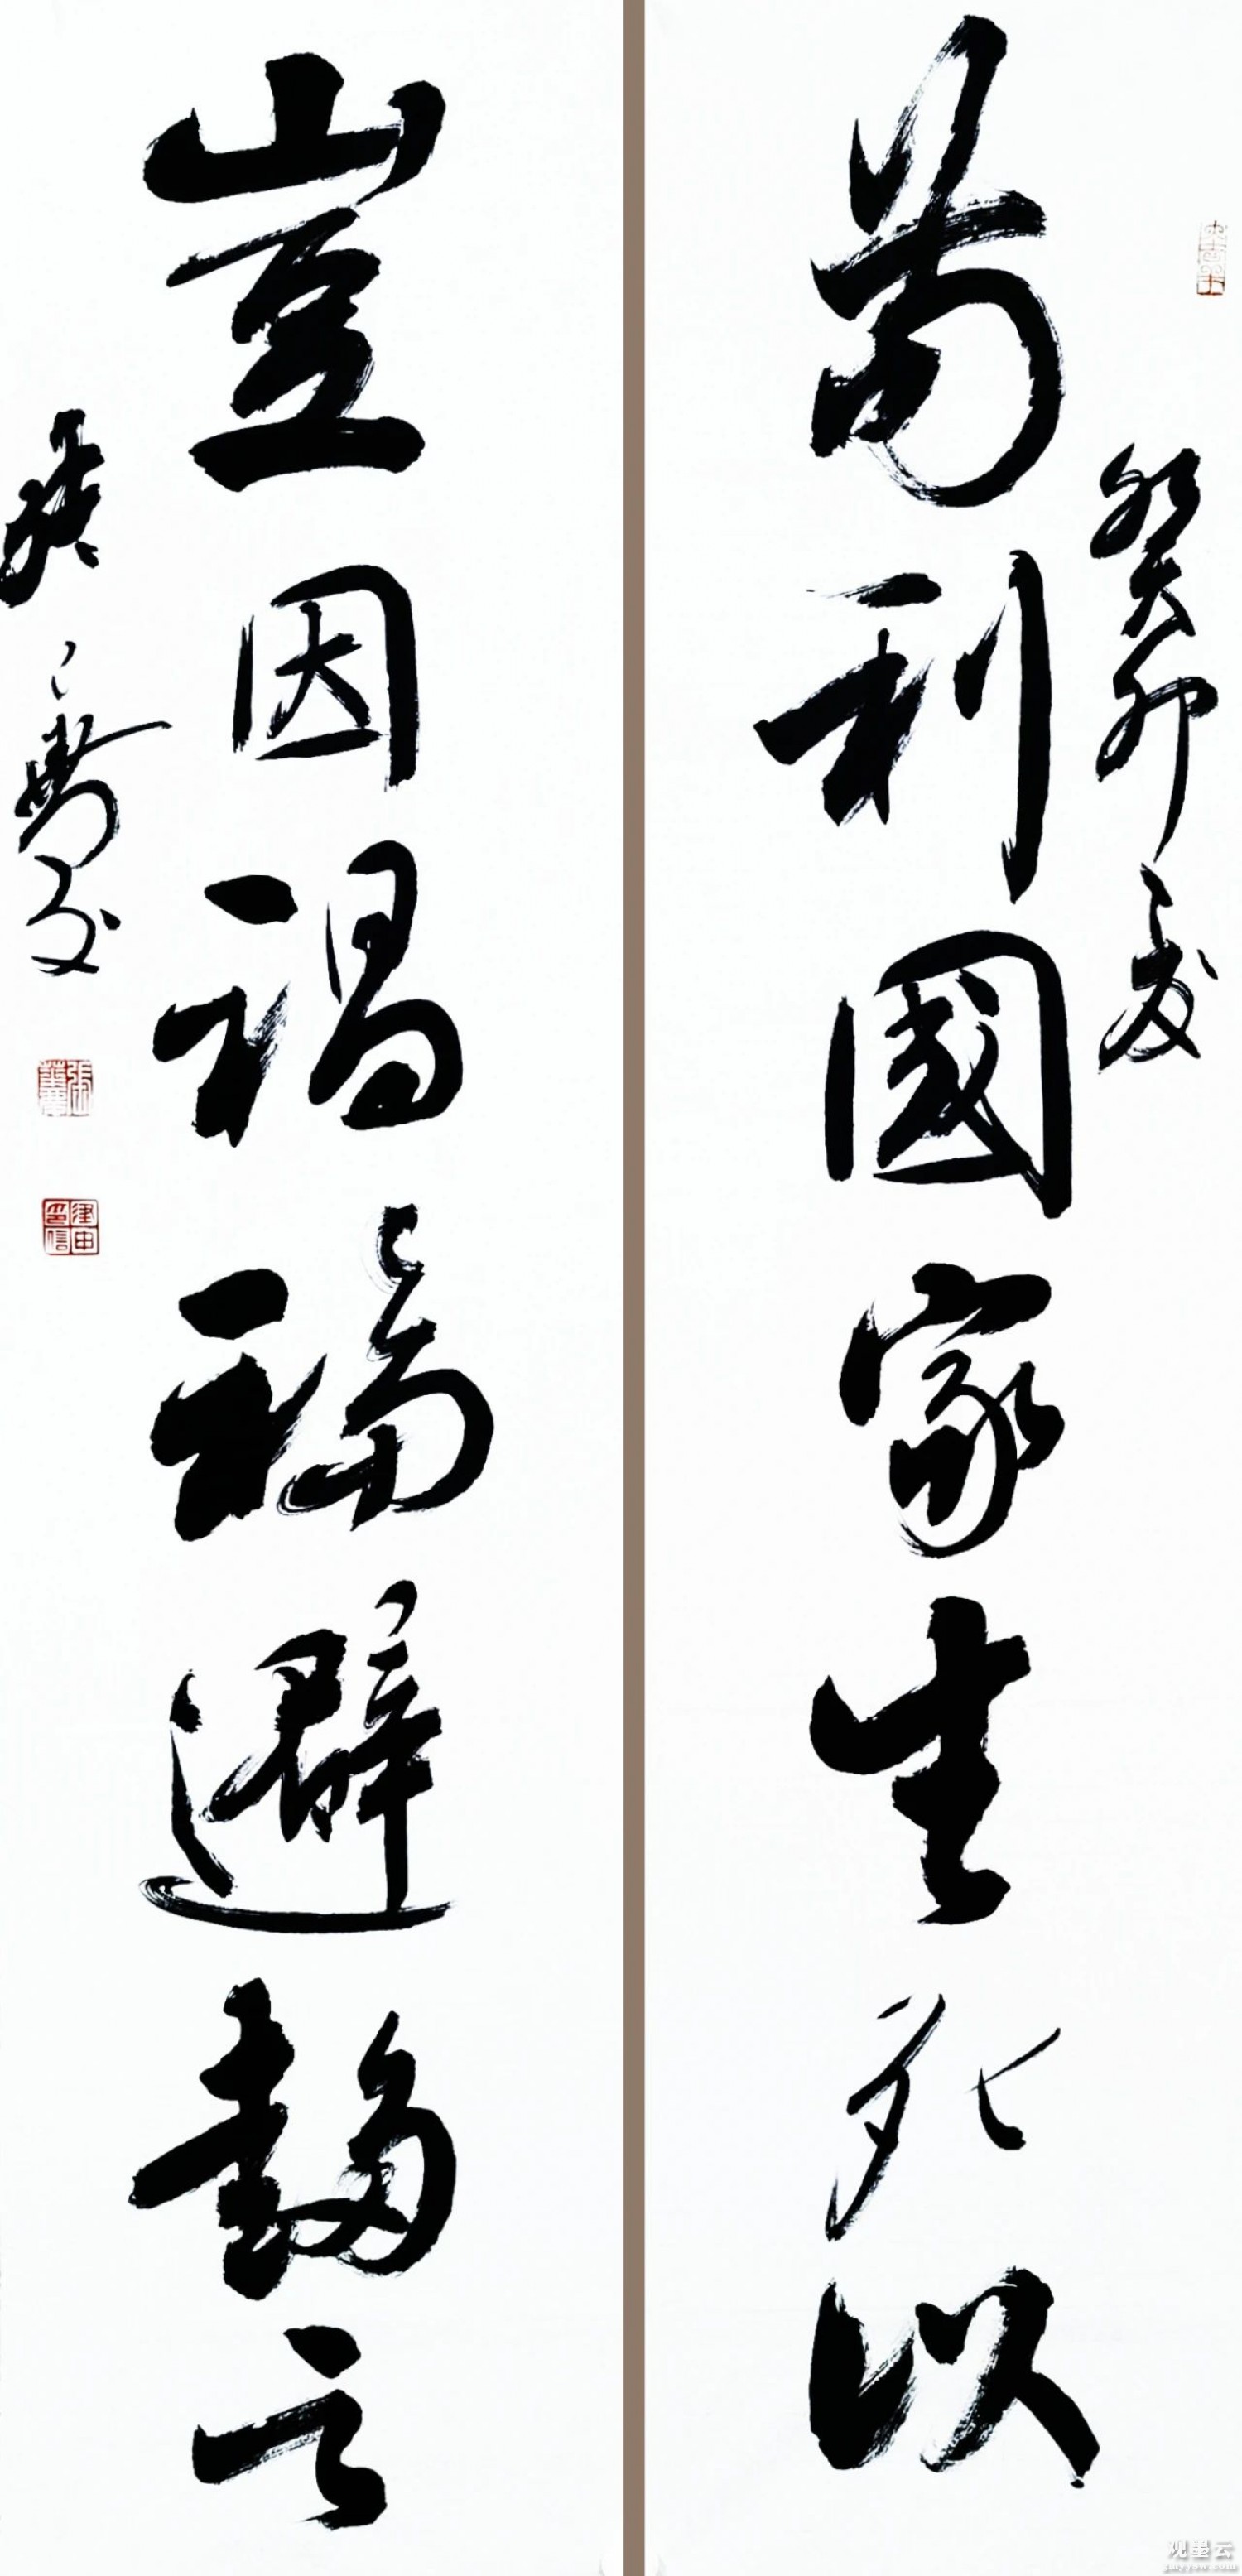 癸卯之夏
苟利國家生死以
豈因禍福避趨之
观墨云